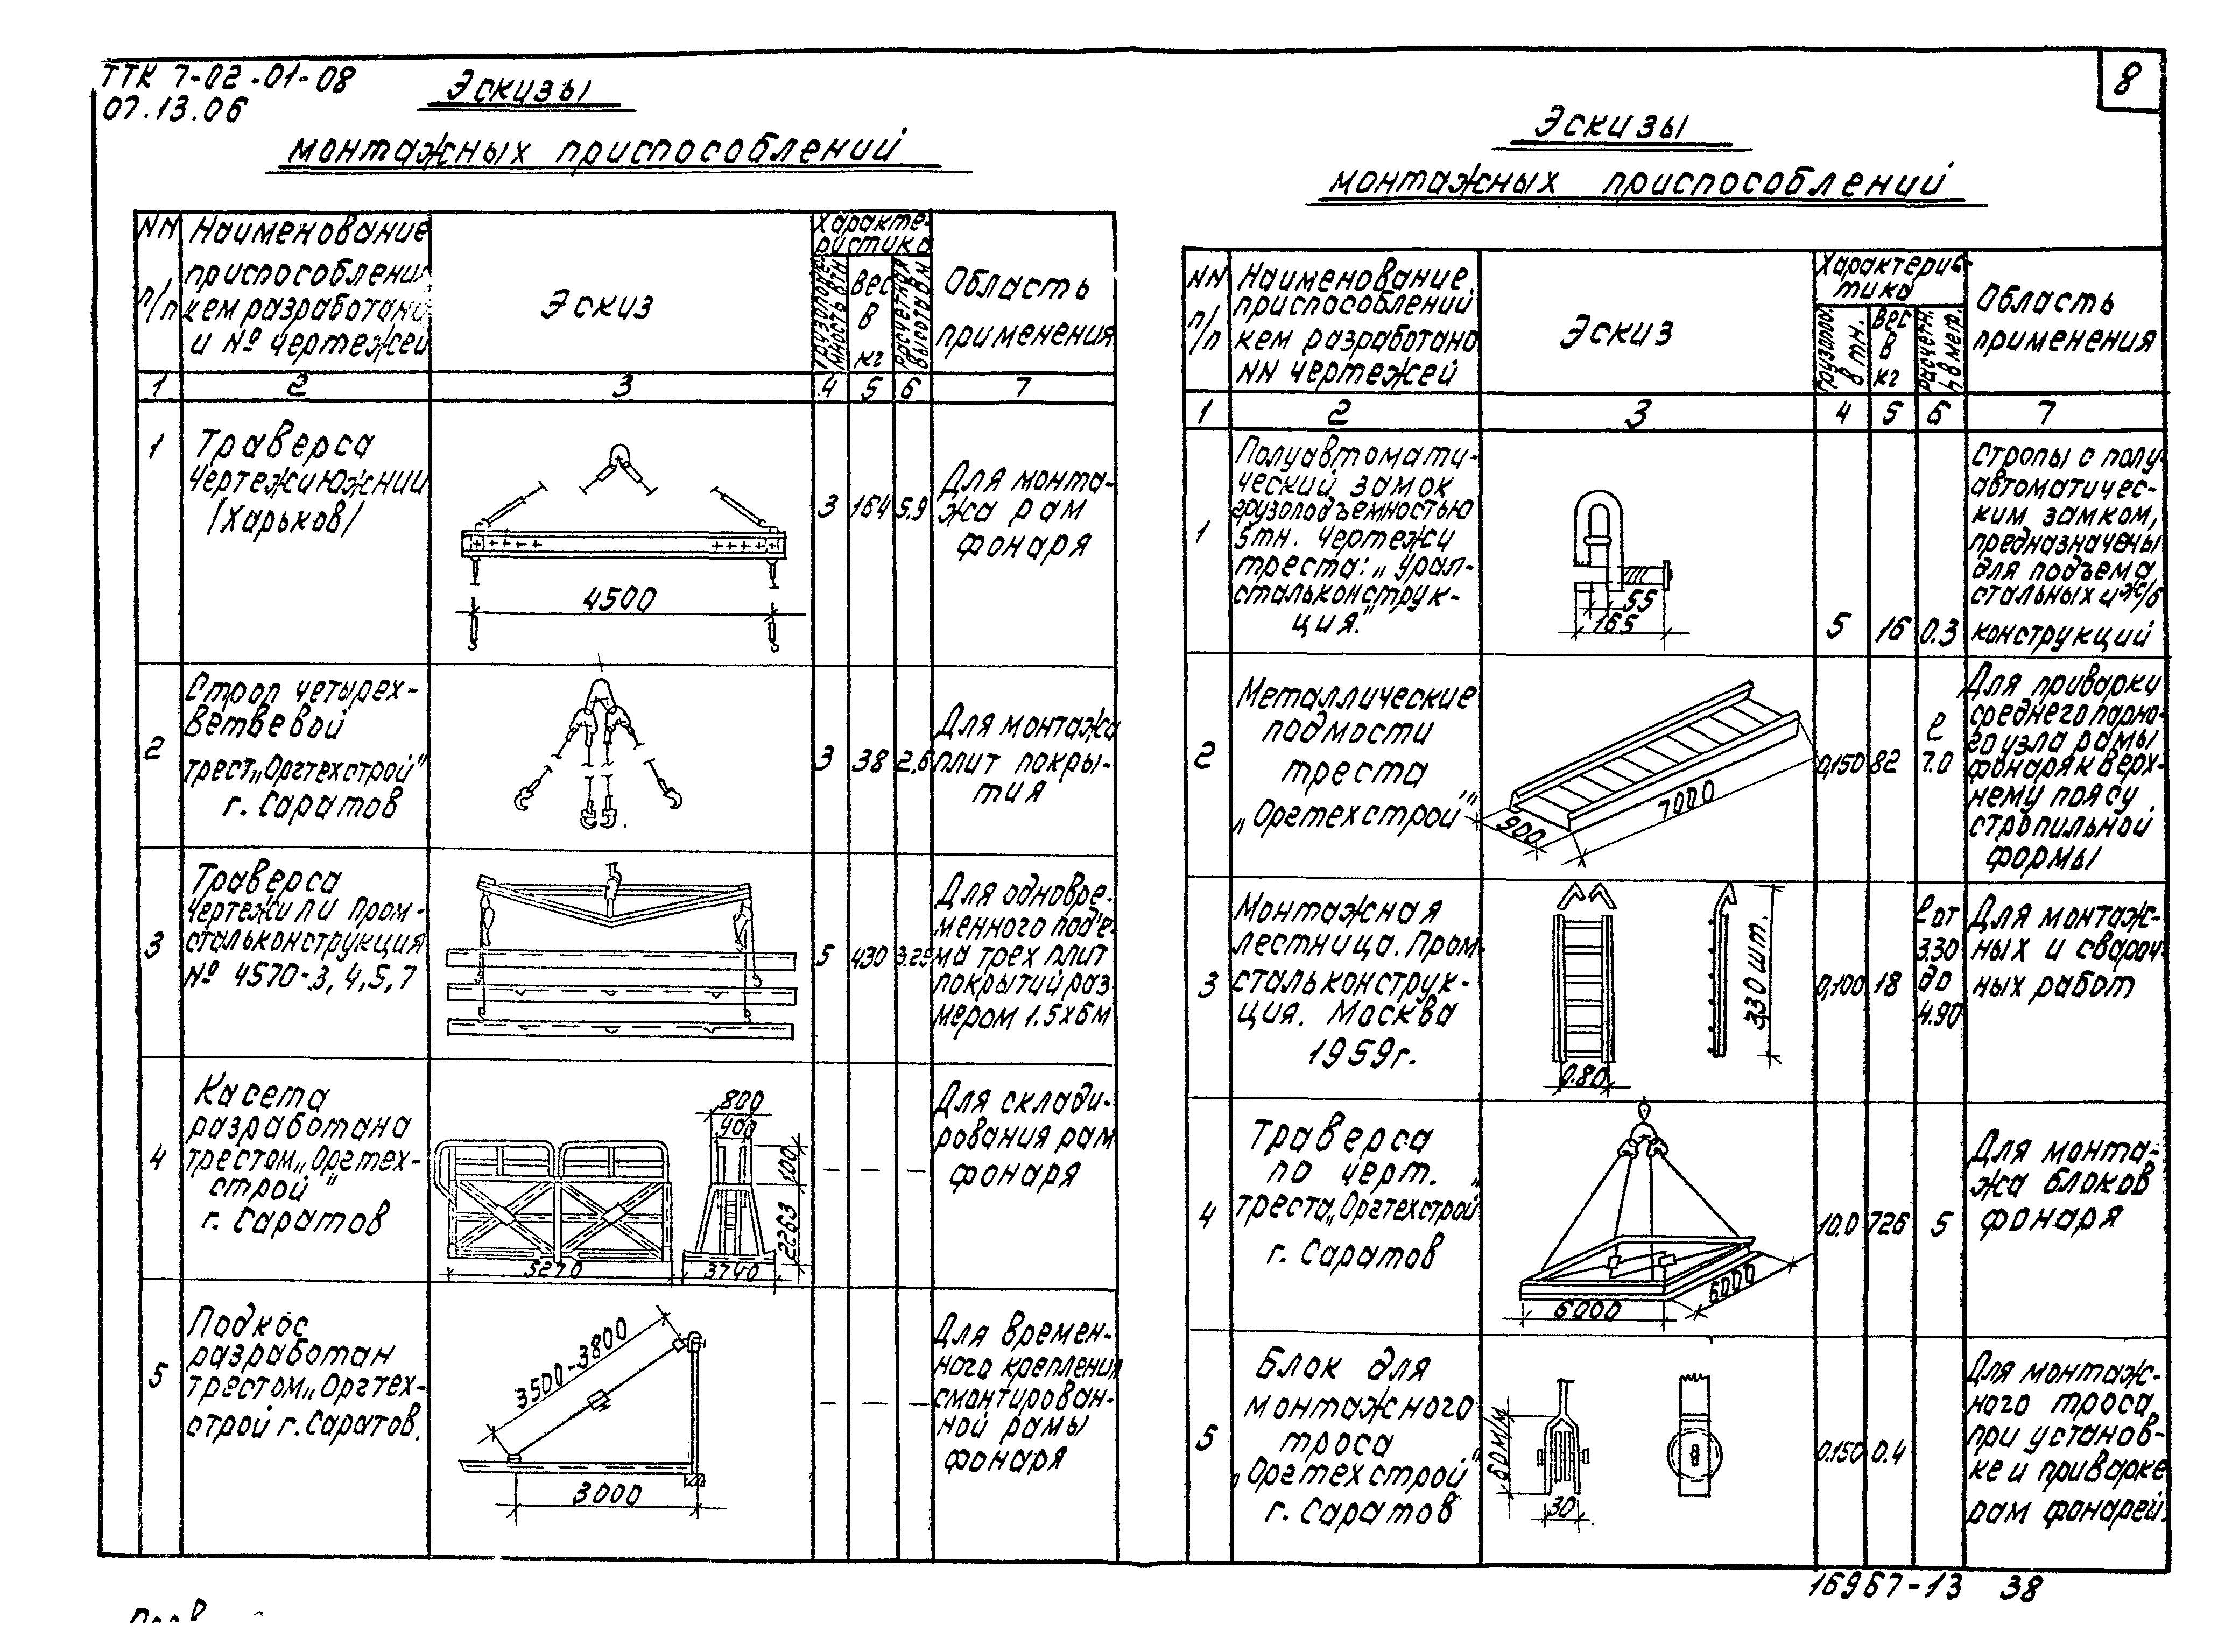 ТТК 7-02-01-08
07.13.06
8
Эскизы
монтажных приспособлений
NN п/п
Наименование
приспособлений
кем разработано
и № чертежей
Эскиз
Характе-
ристика
Грузоподъем-
ность в тн
Вес
в
кг
Расчетная
высота в м
Область
применения
1 2 3 4 5 6 7
1
Траверса
Чертежи ЮжНИИ
/Харьков/
4500
3 164 5.9
Для монта-
жа рам
фонаря
2
Строп четырех-
ветвевой
трест „Оргтехстрой"
г. Саратов
3 38 2,6
Для монтажа
плит покры-
тия
3
Траверса
чертежи ПИ Пром-
стальконструкция
№ 4570-3, 4, 5, 7
5 430 3.25
Для одновре-
менного подъе-
ма трех плит
покрытий раз
мером 1.5х6м
4
Касета
разработана
трестом „Оргтех-
строй"
г. Саратов
800
400
100
2263
5270
3740
- - -
Для склади-
рования рам
фонаря
5
Подкос
разработан
трестом „Оргтех-
строй г. Саратов.
3500-3800
3000
- - -
Для времен-
ного крепления
смонтирован-
ной рамы
фонаря
Эскизы
монтажных приспособлений
NN п/п
Наименование
приспособлений
кем разработано
NN чертежей
Эскиз
Характерис-
тика
Грузопод.
в тн.
Вес
в
кг
Расчетн.
h в метр.
Область
применения
1 2 3 4 5 6 7
1
Полуавтомати-
ческий замок
грузоподъемностью
5тн. Чертежи
треста: „Урал-
стальконструк-
ция."
55
165
5 16 0.3
Стропы с полу
автоматичес-
ким замком,
предназначены
для подъема
стальных и ж/б
конструкций
2
Металлические
подмости
треста
„Оргтехстрой"
900
7000
0,150 82
ℓ
7.0
Для приварки
среднего парно-
го узла рамы
фонаря к верх-
нему поясу
стропильной
формы
3
Монтажная
лестница. Пром-
стальконструк-
ция. Москва
1959г.
0.80
3,30 шт.
0,100 18
ℓ от
3.30
до
4.90
Для монтаж-
ных и свароч-
ных работ
4
Траверса
по черт.
треста „Оргтехстрой"
г. Саратов
6000
6000
10,0 726 5
Для монта-
жа блоков
фонаря
5
Блок для
монтажного
троса
„Оргтехстрой"
г. Саратов
60м/м
30
0.150 0.4
Для монтаж-
ного троса
при установ-
ке и приварке
рам фонарей.
16967-13 38